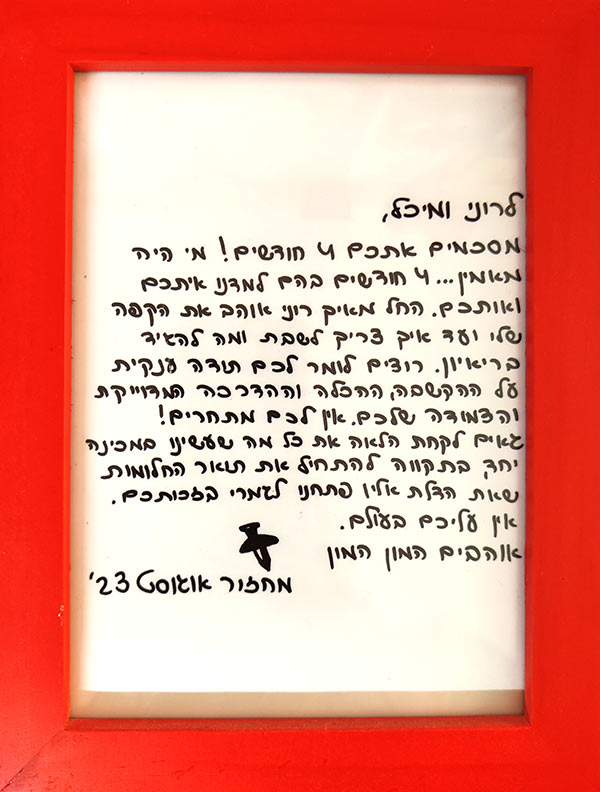 לרוני ומיכל,
מסכמים אתכם 4 חודשים! מי היה
מאמין... 4 חודשים בהם למדנו איתכם
ואותכם. החל מאיך רוני אוהב את הקפה
שלו ועד איך צריך לשבת ומה להגיד
בריאיון. רוצים לומר לכם תודה ענקית
על ההקשבה, ההכלה וההדרכה המדוייקת
והצמודה שלכם. אין לכם מתחרים!
גאים לקחת הלאה את כל מה שעשינו במכינה
יחד, בתקווה להתחיל את תואר החלומות
שאת הדלת אליו פתחנו לגמרי בזכותכם.
אין עליכם בעולם.
אוהבים המון המון
מחזור אוגוסט 23'